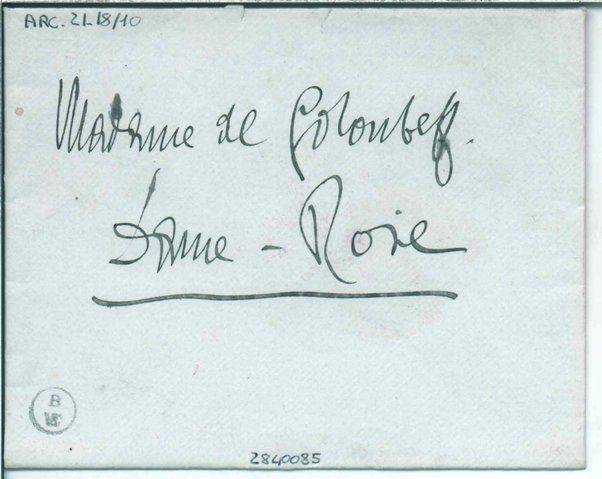 ARC. 21.18/10
Madame de Goloubeff.
Dame-Rose
B
2840085